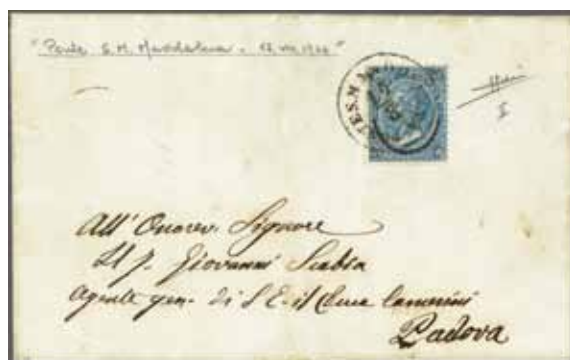 "Ponte S. M. Maddalena - 17 VIII 1866"
TE S. M. MADD
I
All' Onorev. Signore
Il S. Giovanni Scabia
Agente gen. di S. E. il Duca Camerini
Padova